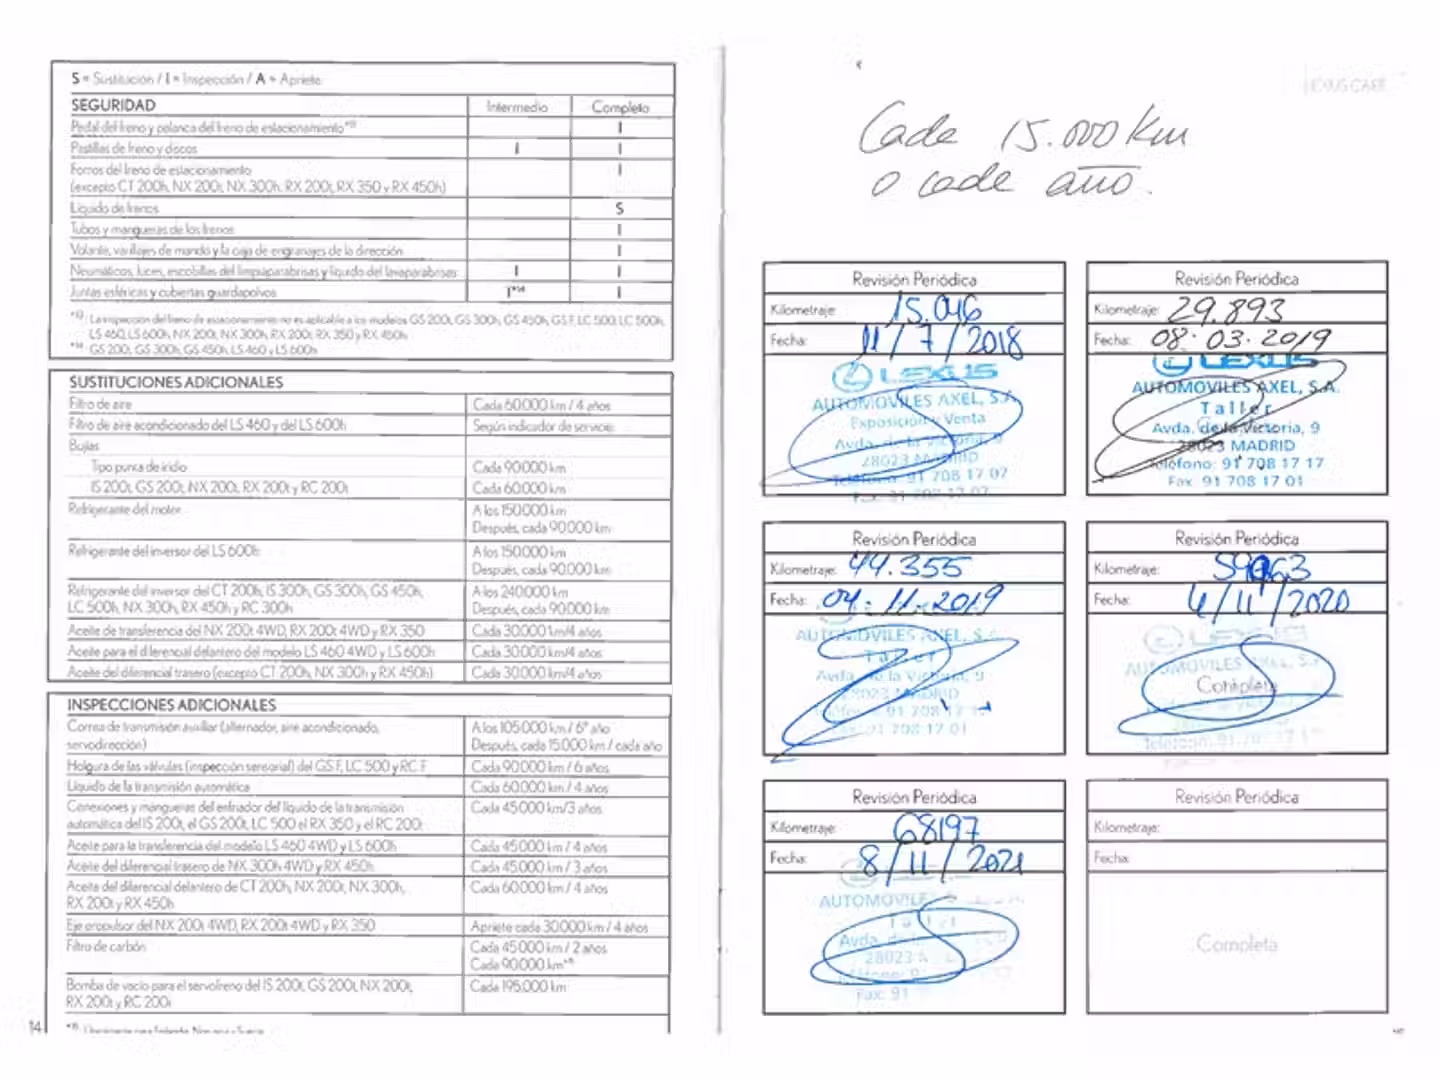 S = Sustitución / I = Inspección / A = Apriete
SEGURIDAD Intermedio Completo
Pedal del freno y palanca del freno de estacionamiento*¹³ I
Pastillas de freno y discos I I
Forros del freno de estacionamiento I
(excepto CT 200h, NX 200t, NX 300h, RX 200t, RX 350 y RX 450h)
Líquido de frenos S
Tubos y mangueras de los frenos I
Volante, varillajes de mando y la caja de engranajes de la dirección I
Neumáticos, luces, escobillas del limpiaparabrisas y líquido del lavaparabrisas I I
Juntas esféricas y cubiertas guardapolvos I*¹⁴ I
*¹³: La inspección del freno de estacionamiento no es aplicable a los modelos GS 200t, GS 300h, GS 450h, GS F, LC 500, LC 500h,
LS 460, LS 600h, NX 200t, NX 300h, RX 200t, RX 350 y RX 450h
*¹⁴: GS 200t, GS 300h, GS 450h, LS 460 y LS 600h
SUSTITUCIONES ADICIONALES
Filtro de aire Cada 60.000 km / 4 años
Filtro de aire acondicionado del LS 460 y del LS 600h Según indicador de servicio
Bujías
Tipo punta de iridio Cada 90.000 km
IS 200t, GS 200t, NX 200t, RX 200t y RC 200t Cada 60.000 km
Refrigerante del motor A los 150.000 km
Después, cada 90.000 km
Refrigerante del inversor del LS 600h A los 150.000 km
Después, cada 90.000 km
Refrigerante del inversor del CT 200h, IS 300h, GS 300h, GS 450h, A los 240.000 km
LC 500h, NX 300h, RX 450h y RC 300h Después, cada 90.000 km
Aceite de transferencia del NX 200t 4WD, RX 200t 4WD y RX 350 Cada 30.000 km/4 años
Aceite para el diferencial delantero del modelo LS 460 4WD y LS 600h Cada 30.000 km/4 años
Aceite del diferencial trasero (excepto CT 200h, NX 300h y RX 450h) Cada 30.000 km/4 años
INSPECCIONES ADICIONALES
Correa de transmisión auxiliar (alternador, aire acondicionado, A los 105.000 km / 6º año
servodirección) Después, cada 15.000 km / cada año
Holgura de las válvulas (inspección sensorial) del GS F, LC 500 y RC F Cada 90.000 km / 6 años
Líquido de la transmisión automática Cada 60.000 km / 4 años
Conexiones y mangueras del enfriador del líquido de la transmisión Cada 45.000 km/3 años
automática del IS 200t, el GS 200t, LC 500 el RX 350 y el RC 200t
Aceite para la transferencia del modelo LS 460 4WD y LS 600h Cada 45.000 km / 4 años
Aceite del diferencial trasero de NX 300h 4WD y RX 450h Cada 45.000 km / 3 años
Aceite del diferencial delantero de CT 200h, NX 200t, NX 300h, Cada 60.000 km / 4 años
RX 200t y RX 450h
Eje propulsor del NX 200t 4WD, RX 200t 4WD y RX 350 Apriete cada 30.000 km / 4 años
Filtro de carbón Cada 45.000 km / 2 años
Cada 90.000 km*¹⁵
Bomba de vacío para el servofreno del IS 200t, GS 200t, NX 200t, Cada 195.000 km
RX 200t y RC 200t
14
LEXUS CARE
Cada 15.000 Km
o cada año.
Revisión Periódica
Kilometraje: 15.046
Fecha: 11/7/2018
LEXUS
AUTOMOVILES AXEL, S.A.
Exposición y Venta
Avda. de la Victoria, 9
28023 MADRID
Teléfono: 91 708 17 07
Fax: 91 708 17 07
Revisión Periódica
Kilometraje: 29.893
Fecha: 08.03.2019
LEXUS
AUTOMOVILES AXEL, S.A.
Taller
Avda. de la Victoria, 9
28023 MADRID
Teléfono: 91 708 17 17
Fax: 91 708 17 01
Revisión Periódica
Kilometraje: 44.355
Fecha: 04.11.2019
AUTOMOVILES AXEL, S.A.
Taller
Avda. de la Victoria, 9
28023 MADRID
91 708 17
Fax: 91 708 17 01
Revisión Periódica
Kilometraje: 59063
Fecha: 4/11/2020
LEXUS
AUTOMOVILES AXEL, S.A.
Completa
Revisión Periódica
Kilometraje: 68197
Fecha: 8/11/2021
AUTOMOVILES
Taller
Avda. de
28023
Fax: 91
Revisión Periódica
Kilometraje:
Fecha:
Completa